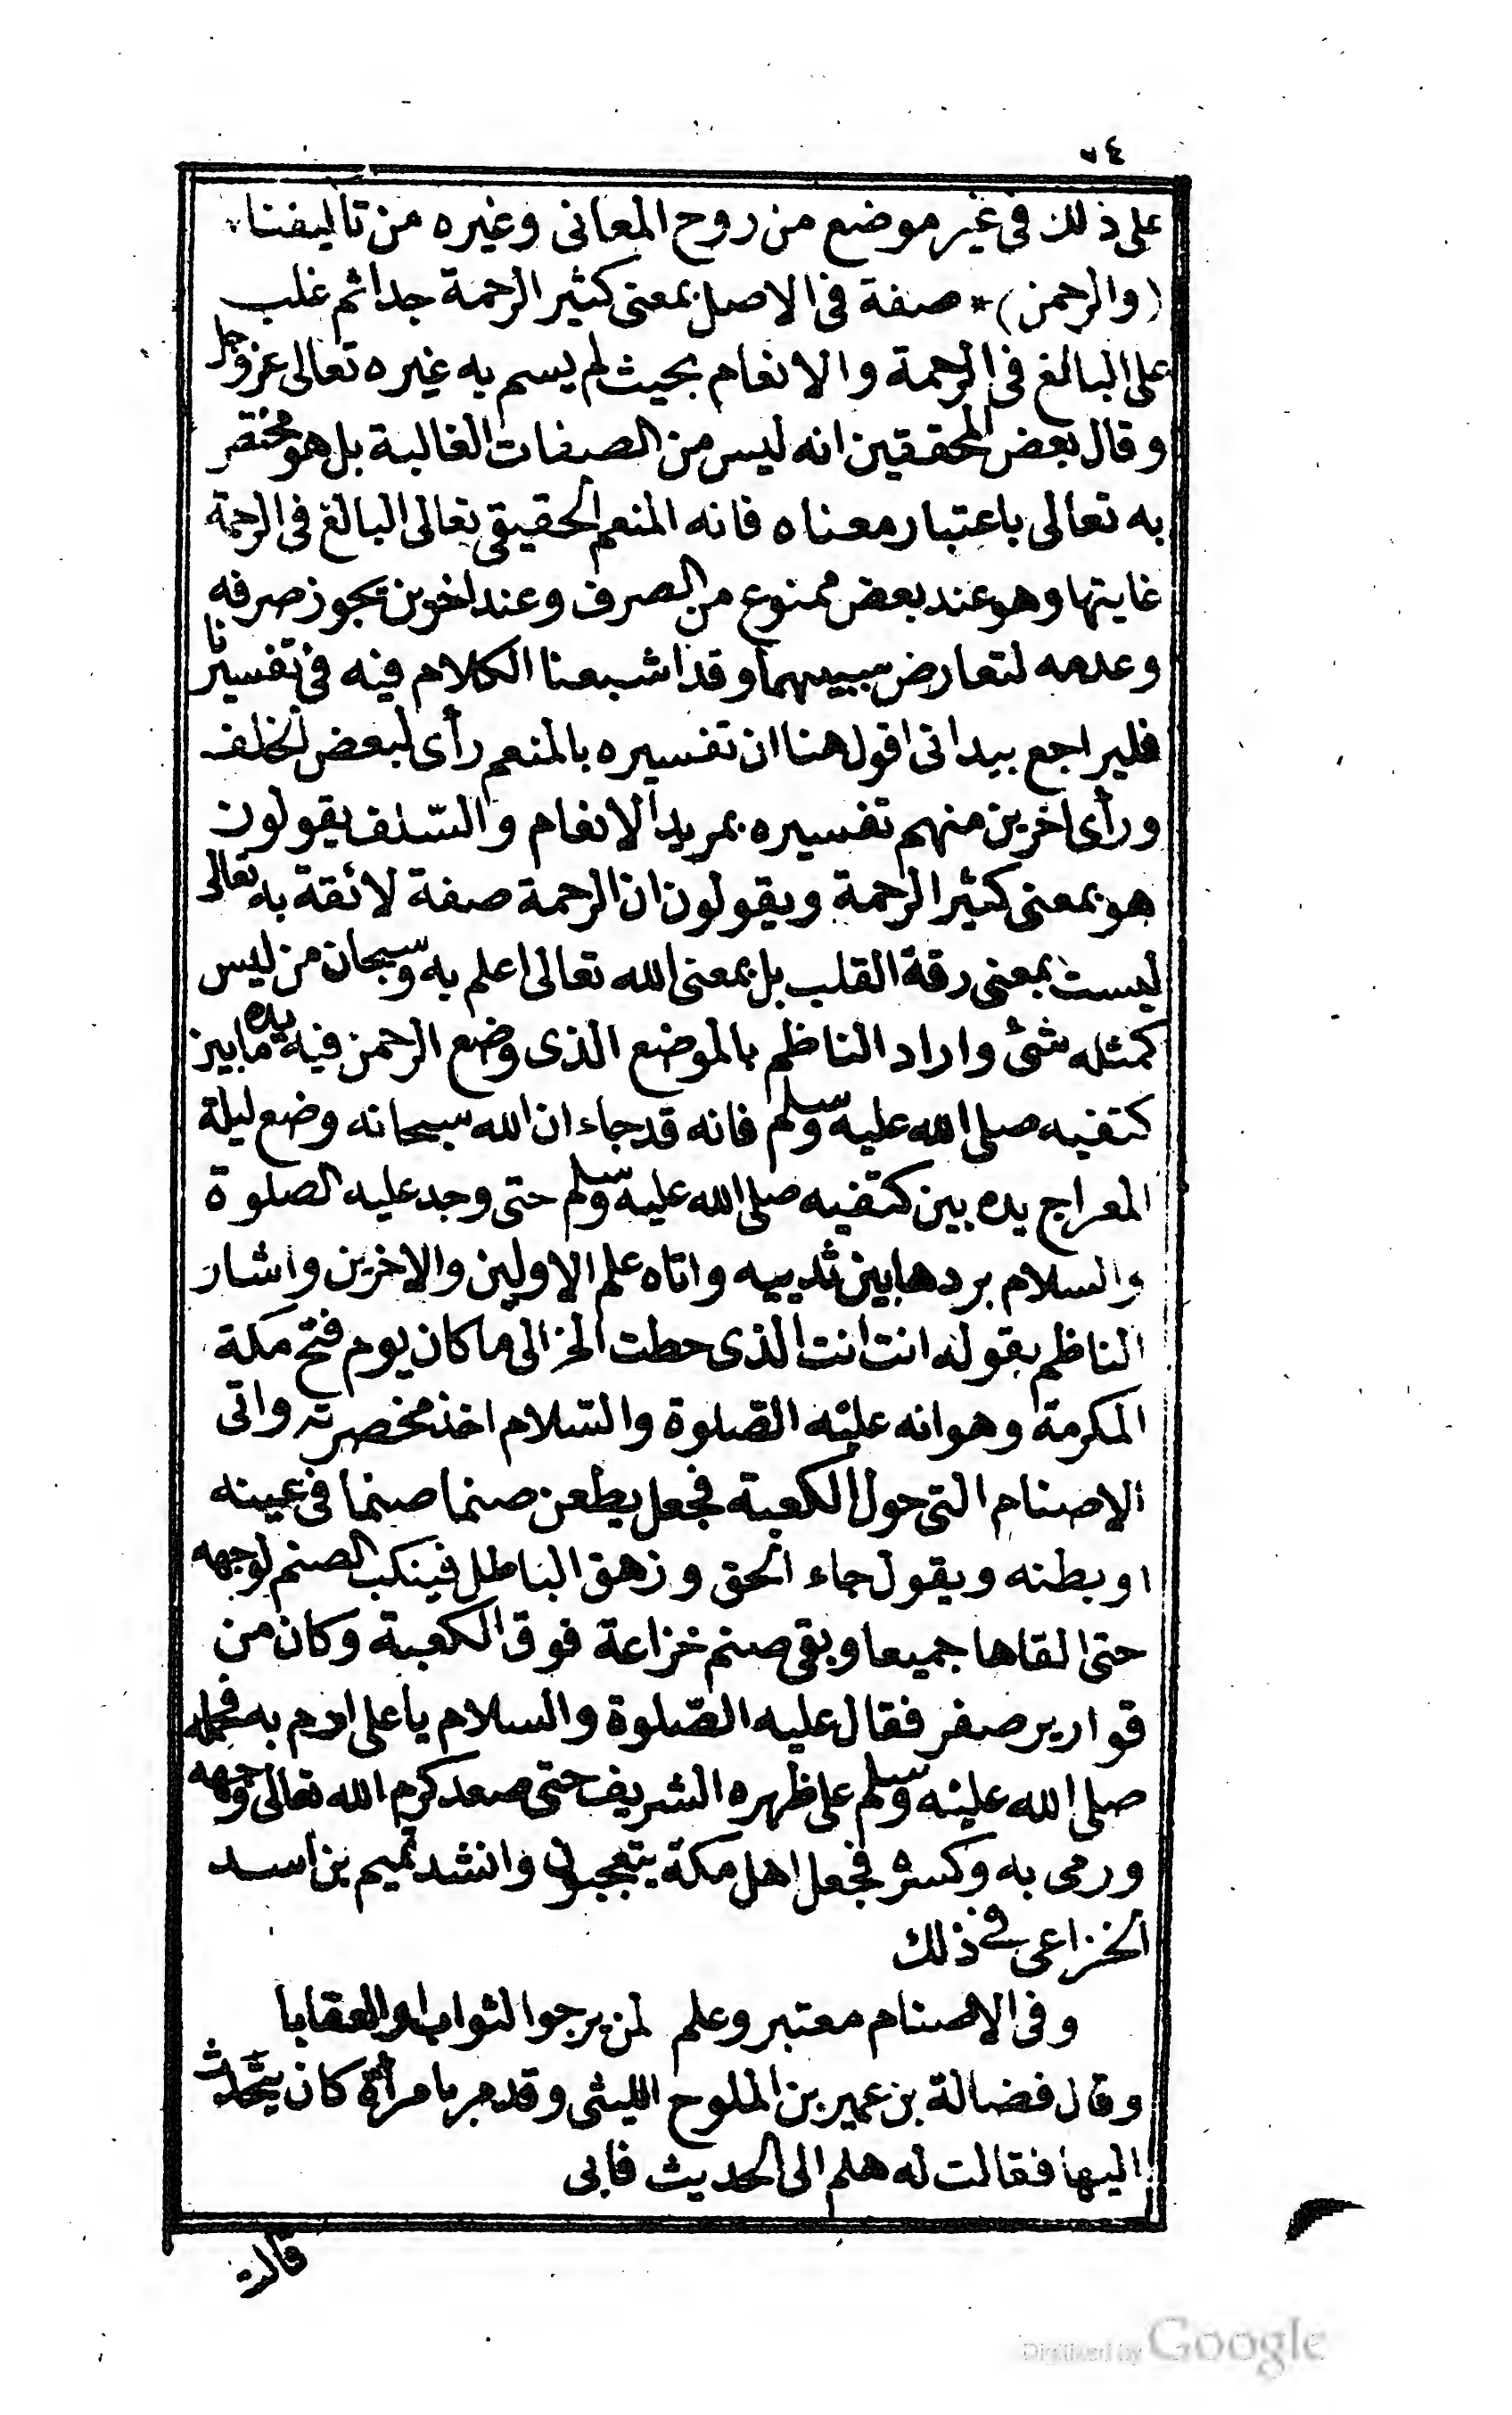 ٧٤
على ذلك فى غير موضع من روح المعانى وغيره من تاليفنا
(والرحمن) * صفة فى الاصل بمعنى كثير الرحمة جدا ثم غلب
على البالغ فى الرحمة والانعام بحيث لم يسم به غيره تعالى عز وجل
وقال بعض المحققين انه ليس من الصفات الغالبة بل هو مختص
به تعالى باعتبار معناه فانه المنعم الحقيقى تعالى البالغ فى الرحمة
غايتها وهو عند بعض ممنوع من الصرف وعند اخرين يجوز صرفه
وعدمه لتعارض سببيهما وقد اشبعنا الكلام فيه فى تفسيرنا
فليراجع بيد انى اقول هنا ان تفسيره بالمنعم رأى لبعض الخلف
ورأى اخرين منهم تفسيره بمريد الانعام والسّلف يقولون
هو بمعنى كثير الرحمة ويقولون ان الرحمة صفة لائقة به تعالى
ليست بمعنى رقة القلب بل بمعنى الله تعالى اعلم به وسبحان من ليس
كمثله شئ واراد الناظم بالموضع الذى وضع الرحمن فيه يده ما بين
كتفيه صلى الله عليه وسلم فانه قد جاء ان الله سبحانه وضع ليلة
المعراج يده بين كتفيه صلى الله عليه وسلم حتى وجد عليه الصلوة
والسلام بردها بين ثدييه واتاه علم الاولين والاخرين واشار
الناظم بقوله انت انت الذى حطت الخ الى ما كان يوم فتح مكة
المكرمة وهو انه عليه الصّلوة والسّلام اخذ مخصرته واتى
الاصنام التى حول الكعبة فجعل يطعن صنما صنما فى عينه
او بطنه ويقول جاء الحق وزهق الباطل فينكب الصنم لوجهه
حتى القاها جميعا وبقى صنم خزاعة فوق الكعبة وكان من
قوارير صفر فقال عليه الصّلوة والسلام يا على ارم به فحمله
صلى الله عليه وسلم على ظهره الشريف حتى صعد كرم الله تعالى وجهه
ورمى به وكسره فجعل اهل مكة يتعجبون وانشد تميم بن اسد
الخزاعى فى ذلك
وفى الاصنام معتبر وعلم لمن يرجوا الثواب او العقابا
وقال فضالة بن عمير بن الملوح الليثى وقد مر بامرأة كان يتحدث
اليها فقالت له هلم الى الحديث فابى
قالت
Digitized by Google